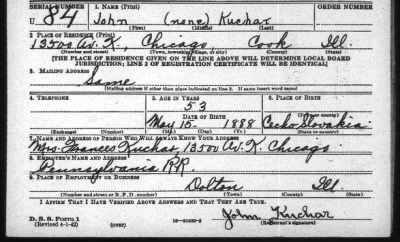 SERIAL NUMBER 1. NAME (Print) ORDER NUMBER
U 84 John (none) Kuchar
(First) (Middle) (Last)
2. PLACE OF RESIDENCE (Print)
13500 Av. K., Chicago Cook Ill.
(Number and street) (Town, township, village, or city) (County) (State)
[THE PLACE OF RESIDENCE GIVEN ON THE LINE ABOVE WILL DETERMINE LOCAL BOARD
JURISDICTION; LINE 2 OF REGISTRATION CERTIFICATE WILL BE IDENTICAL]
3. MAILING ADDRESS
Same
[Mailing address if other than place indicated on line 2. If same insert word same]
4. TELEPHONE 5. AGE IN YEARS 6. PLACE OF BIRTH
53
DATE OF BIRTH
May 15. 1888 Cecho Slovakia
(Exchange) (Number) (Mo.) (Day) (Yr.) (State or country)
7. NAME AND ADDRESS OF PERSON WHO WILL ALWAYS KNOW YOUR ADDRESS
Mrs. Frances Kuchar, 13500 Av. K. Chicago
8. EMPLOYER'S NAME AND ADDRESS
Pennsylvania RR.
9. PLACE OF EMPLOYMENT OR BUSINESS
Dolton Ill.
(Number and street or R. F. D. number) (Town) (County) (State)
I AFFIRM THAT I HAVE VERIFIED ABOVE ANSWERS AND THAT THEY ARE TRUE.
John Kuchar
D. S. S. Form 1
(Revised 4-1-42) (over) 16-21630-2 (Registrant's signature)